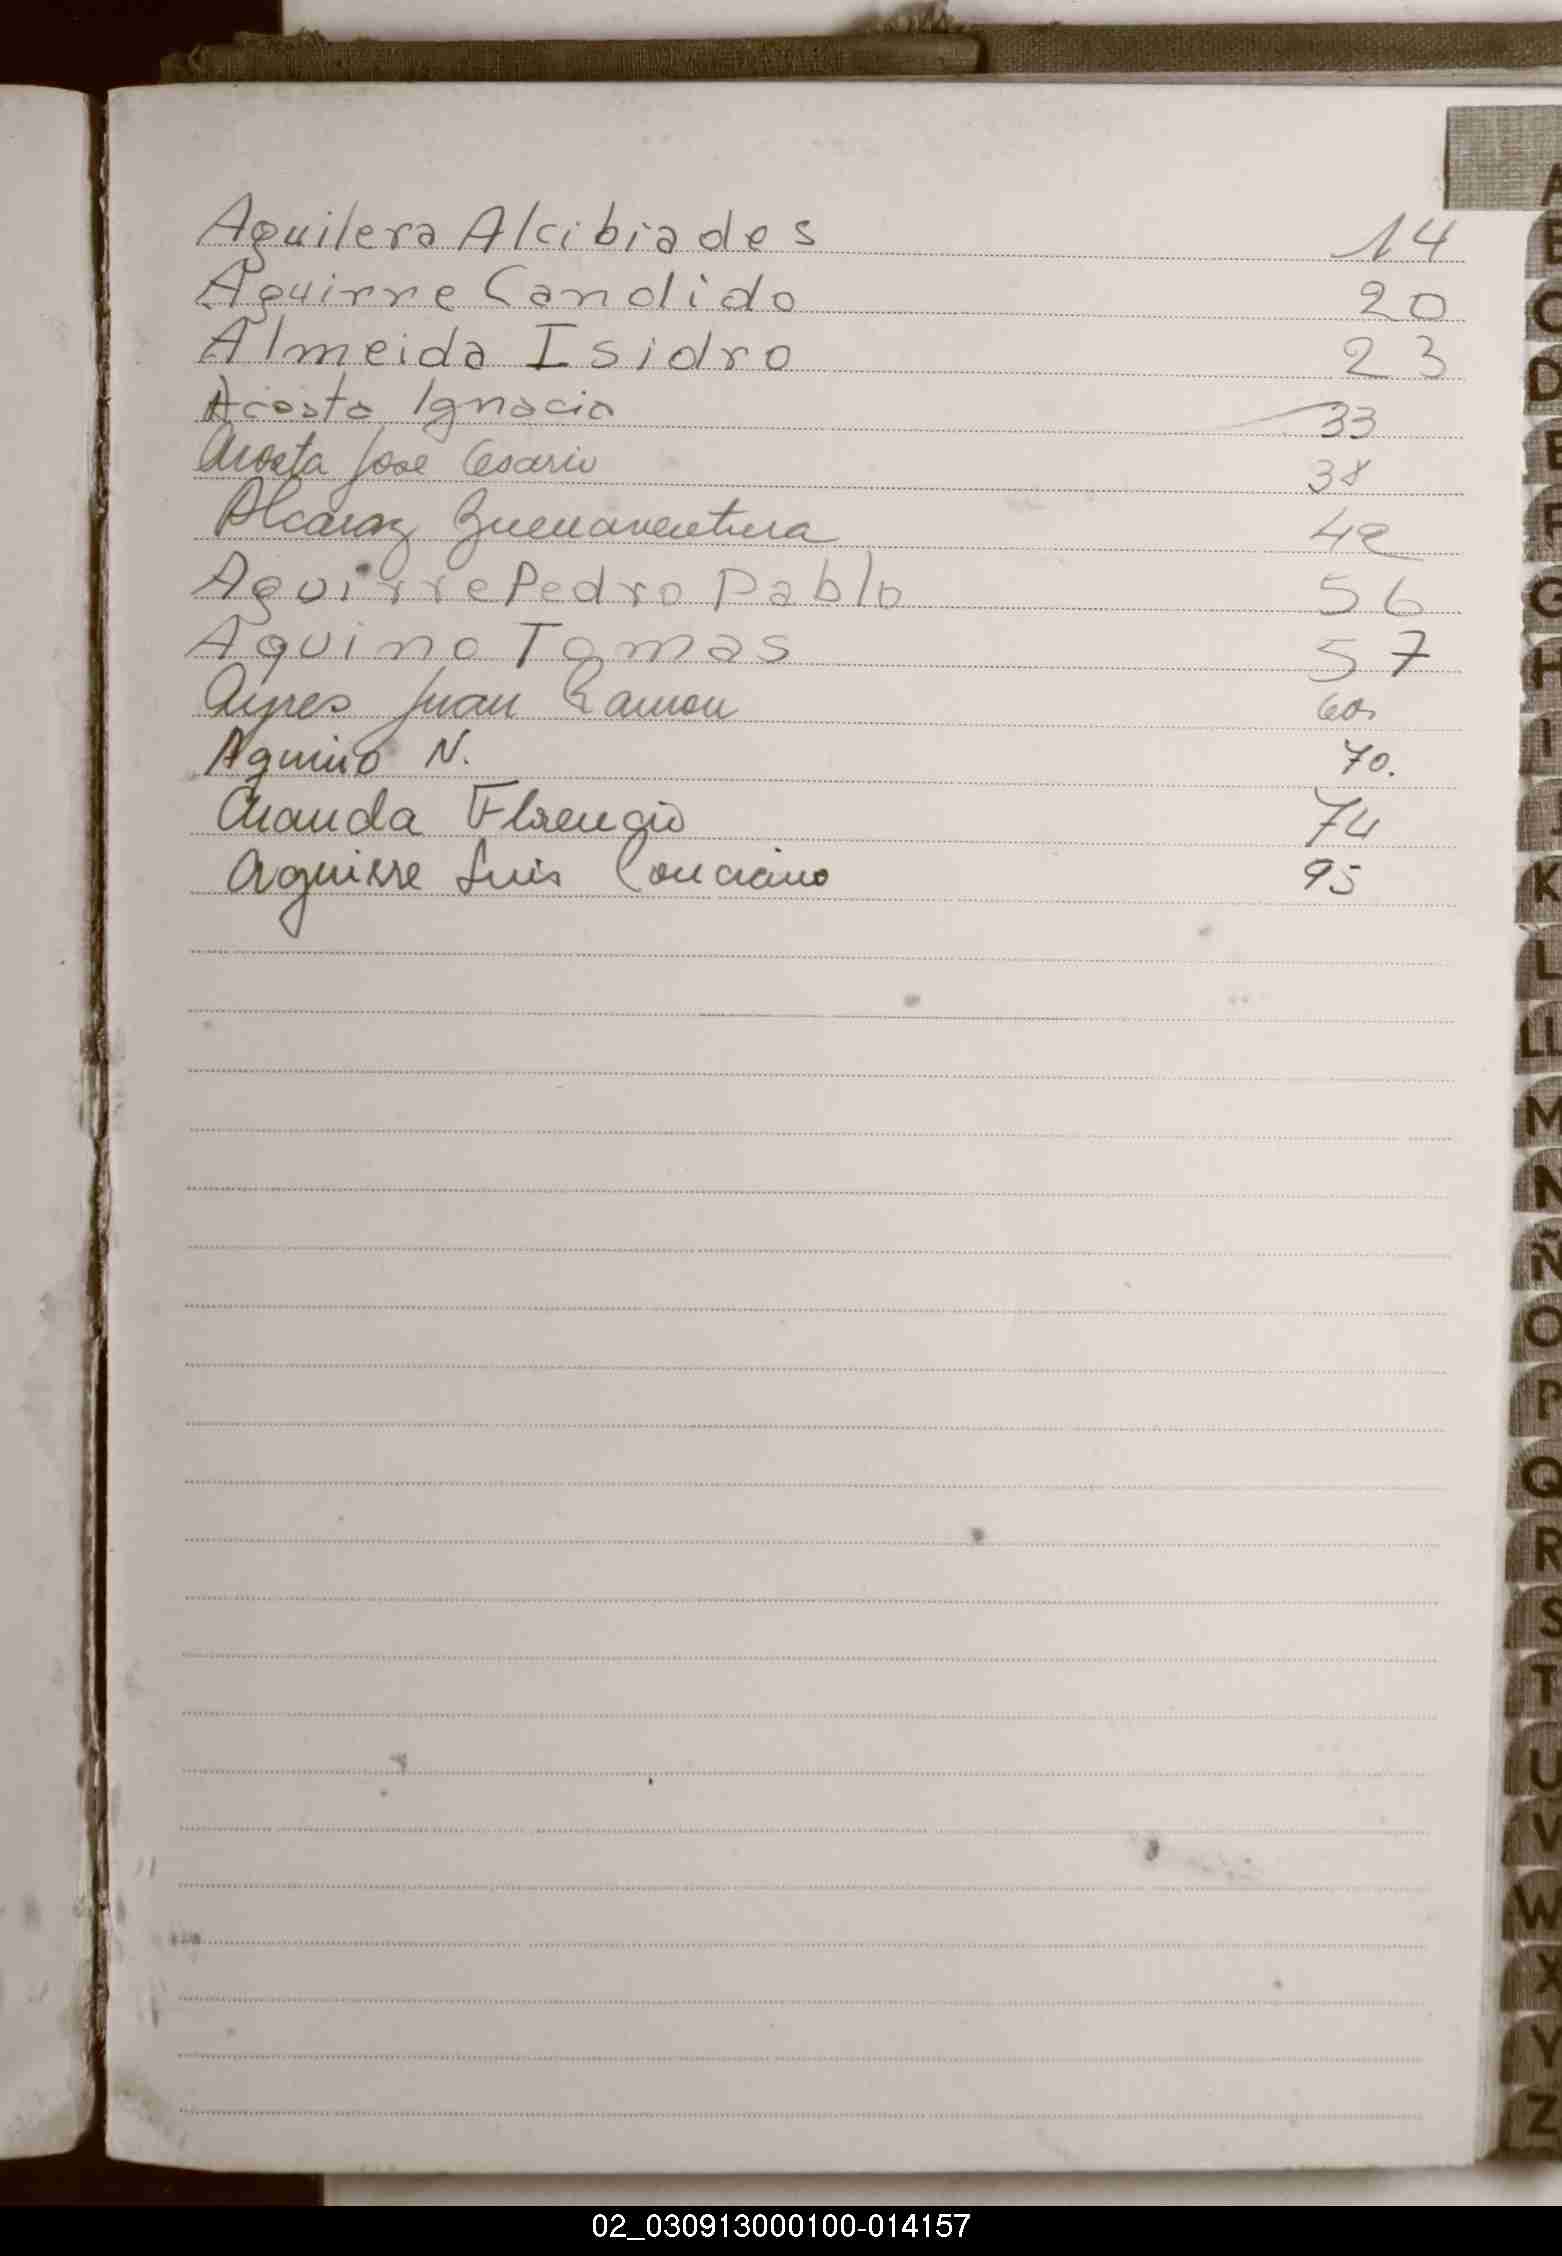 Aguilera Alcibiades 14
Aguirre Candido 20
Almeida Isidro 23
Acosta Ignacio 33
Acosta Jose Cesario 38
Alcaraz Buenaventura 42
Aguirre Pedro Pablo 56
Aquino Tomas 57
Ayres Juan Ramon
Aquino N. 70.
Aranda Florencio 74
Aguirre Luis Conciano 95
A
B
C
D
E
F
G
H
I
J
K
L
LL
M
N
Ñ
O
P
Q
R
S
T
U
V
W
X
Y
Z
02_030913000100-014157